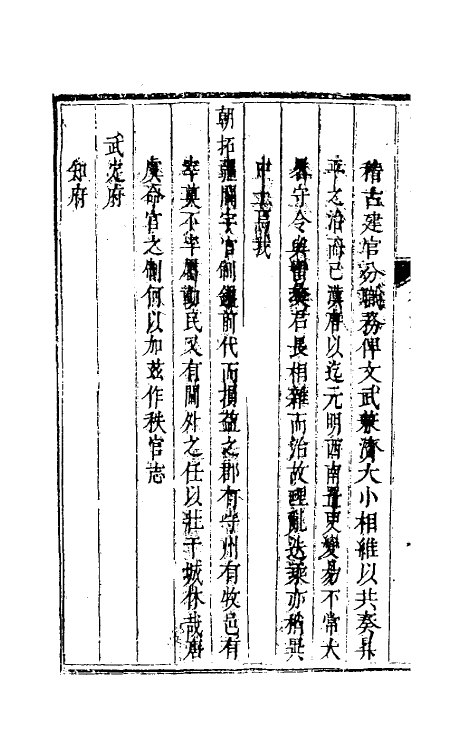 稽古建官分職務俾文武兼濟大小相維以共奏昇
平之治而已漢唐以迄元明西南疊更變易不常大
畧守令與酋長君長相雜而治故理亂迭乘亦稍異
史 我
朝拓疆闢宇官制鑑前代而損益之郡有守州有牧邑有
宰莫不率屬勤民又有閫外之任以壯干城休哉唐
虞命官之制何以加茲作秩官志
武定府
知府